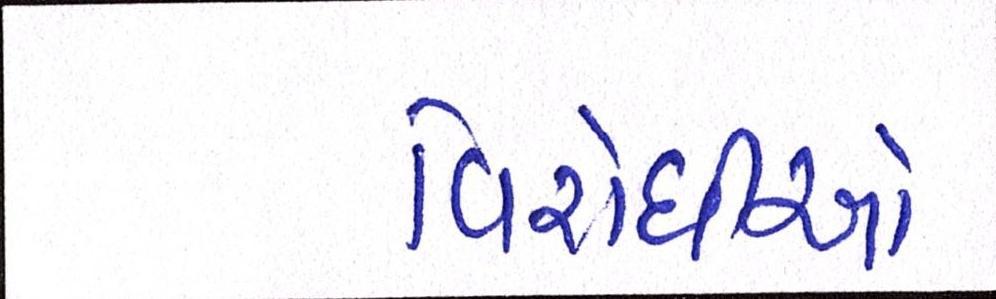 વિરોધીઓ